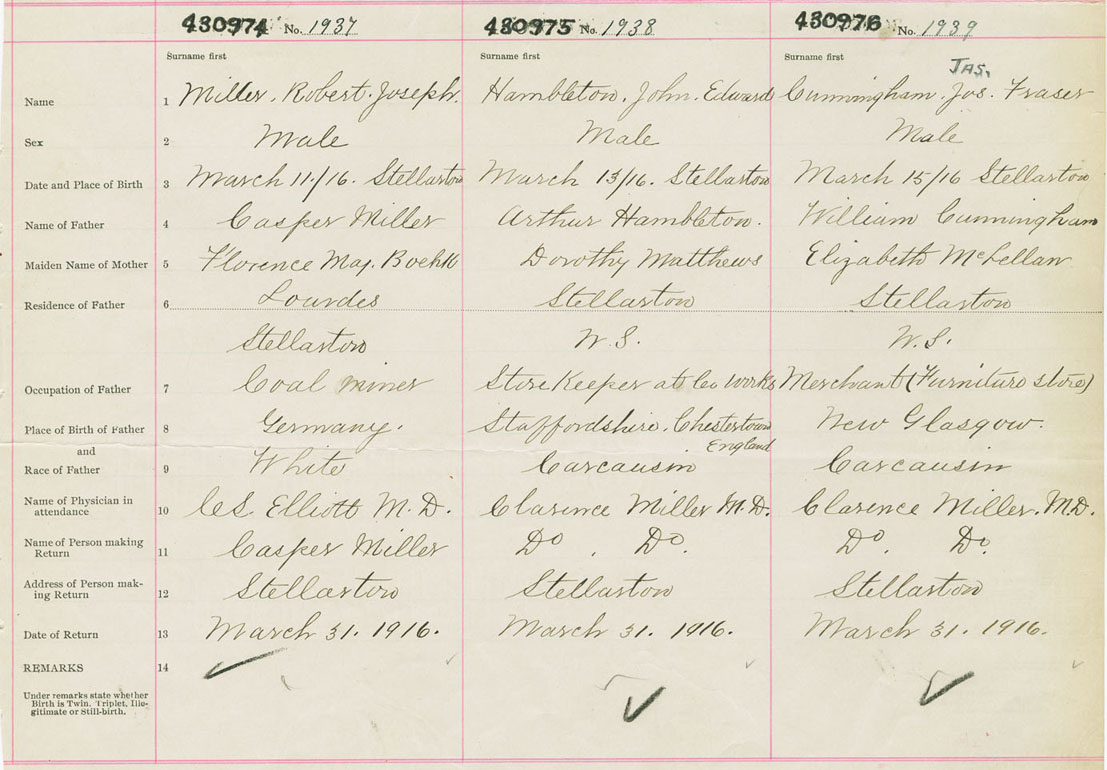 430974 No. 1937 430975 No. 1938 430976 No. 1939
Surname first Surname first Surname first
JAS.
Name 1 Miller. Robert Joseph. Hambleton. John. Edward Cunningham. Jos. Fraser
Sex 2 Male Male Male
Date and Place of Birth 3 March 11./16. Stellarton March 13/16. Stellarton March 15/16 Stellarton
Name of Father 4 Casper Miller Arthur Hambleton. William Cunningham
Maiden Name of Mother 5 Florence May. Dorothy Matthews Elizabeth McLellan
Residence of Father 6 Lourdes Stellarton Stellarton
Stellarton N.S. N.S.
Occupation of Father 7 Coal miner Store Keeper at Co works Merchant (Furniture store)
Place of Birth of Father 8 Germany. Staffordshire. Chestertown New Glasgow.
England
and
Race of Father 9 White Carcausin Carcausin
Name of Physician in
attendance 10 C.S. Elliott M.D. Clarence Miller M.D. Clarence Miller. M.D.
Name of Person making
Return 11 Casper Miller Do. Do. Do. Do.
Address of Person mak-
ing Return 12 Stellarton Stellarton Stellarton
Date of Return 13 March 31. 1916. March 31. 1916. March 31. 1916.
REMARKS 14
Under remarks state whether
Birth is Twin. Triplet, Ille-
gitimate or Still-birth.